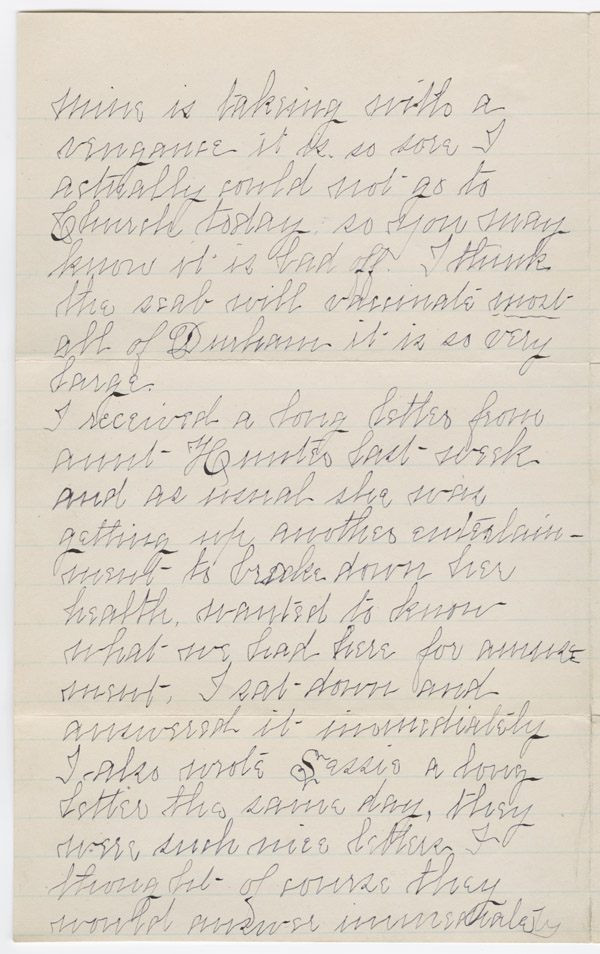 mine is takeing with a
vengance it is so sore I
actually could not go to
Church today. so you may
know it is bad off. I think
the scab will vaccinate most
all of Durham it is so very
large.
I received a long letter from
aunt Hunter last week
and as usual she was
getting up another entertain-
ment to brake down her
health, wanted to know
what we had here for amuse
ment. I sat down and
answered it immediately
I also wrote Sessie a long
letter the same day, they
were such nice letters I
thought of course they
would answer immediately